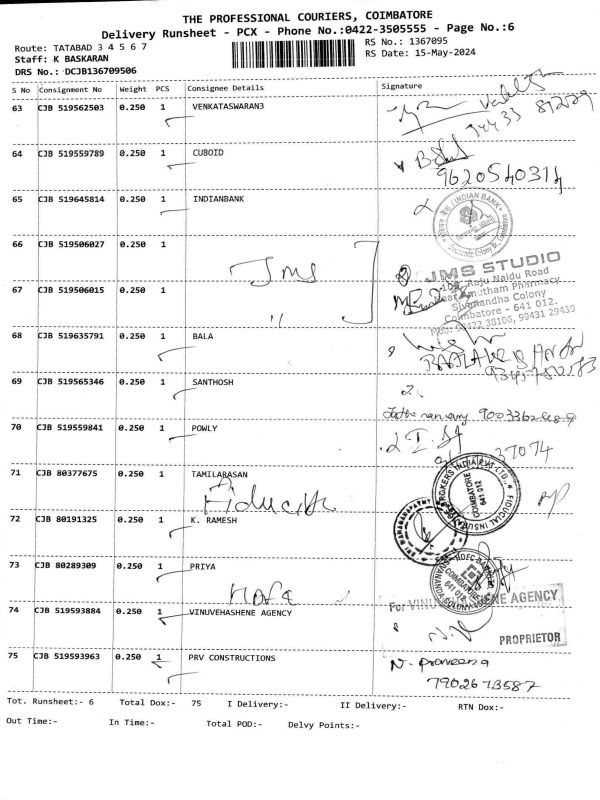 THE PROFESSIONAL COURIERS, COIMBATORE
Delivery Runsheet - PCX - Phone No.:0422-3505555 - Page No.:6
Route: TATABAD 3 4 5 6 7
RS No.: 1367095
Staff: K BASKARAN
RS Date: 15-May-2024
DRS No.: DCJB136709506
S No Consignment No Weight PCS Consignee Details Signature
63 CJB 519562503 0.250 1 VENKATASWARAN3
64 CJB 519559789 0.250 1 CUBOID
9620540314
65 CJB 519645814 0.250 1 INDIANBANK
INDIAN BANK
66 CJB 519506027 0.250 1
Jms
JMS STUDIO
Raju Naidu Road
Near Amutham Pharmacy
Sivanandha Colony
Coimbatore - 641 012.
67 CJB 519506015 0.250 1
"
68 CJB 519635791 0.250 1 BALA
69 CJB 519565346 0.250 1 SANTHOSH
70 CJB 519559841 0.250 1 POWLY
37074
71 CJB 80377675 0.250 1 TAMILARASAN
COIMBATORE
641 012
72 CJB 80191325 0.250 1 K. RAMESH
73 CJB 80289309 0.250 1 PRIYA
HDFC BANK
COIMBATORE
641 012
Hdfc
74 CJB 519593884 0.250 1 VINUVEHASHENE AGENCY
For VINUVEHASHENE AGENCY
PROPRIETOR
75 CJB 519593963 0.250 1 PRV CONSTRUCTIONS
N. Praveena
7902673587
Tot. Runsheet:- 6 Total Dox:- 75 I Delivery:- II Delivery:- RTN Dox:-
Out Time:- In Time:- Total POD:- Delvy Points:-